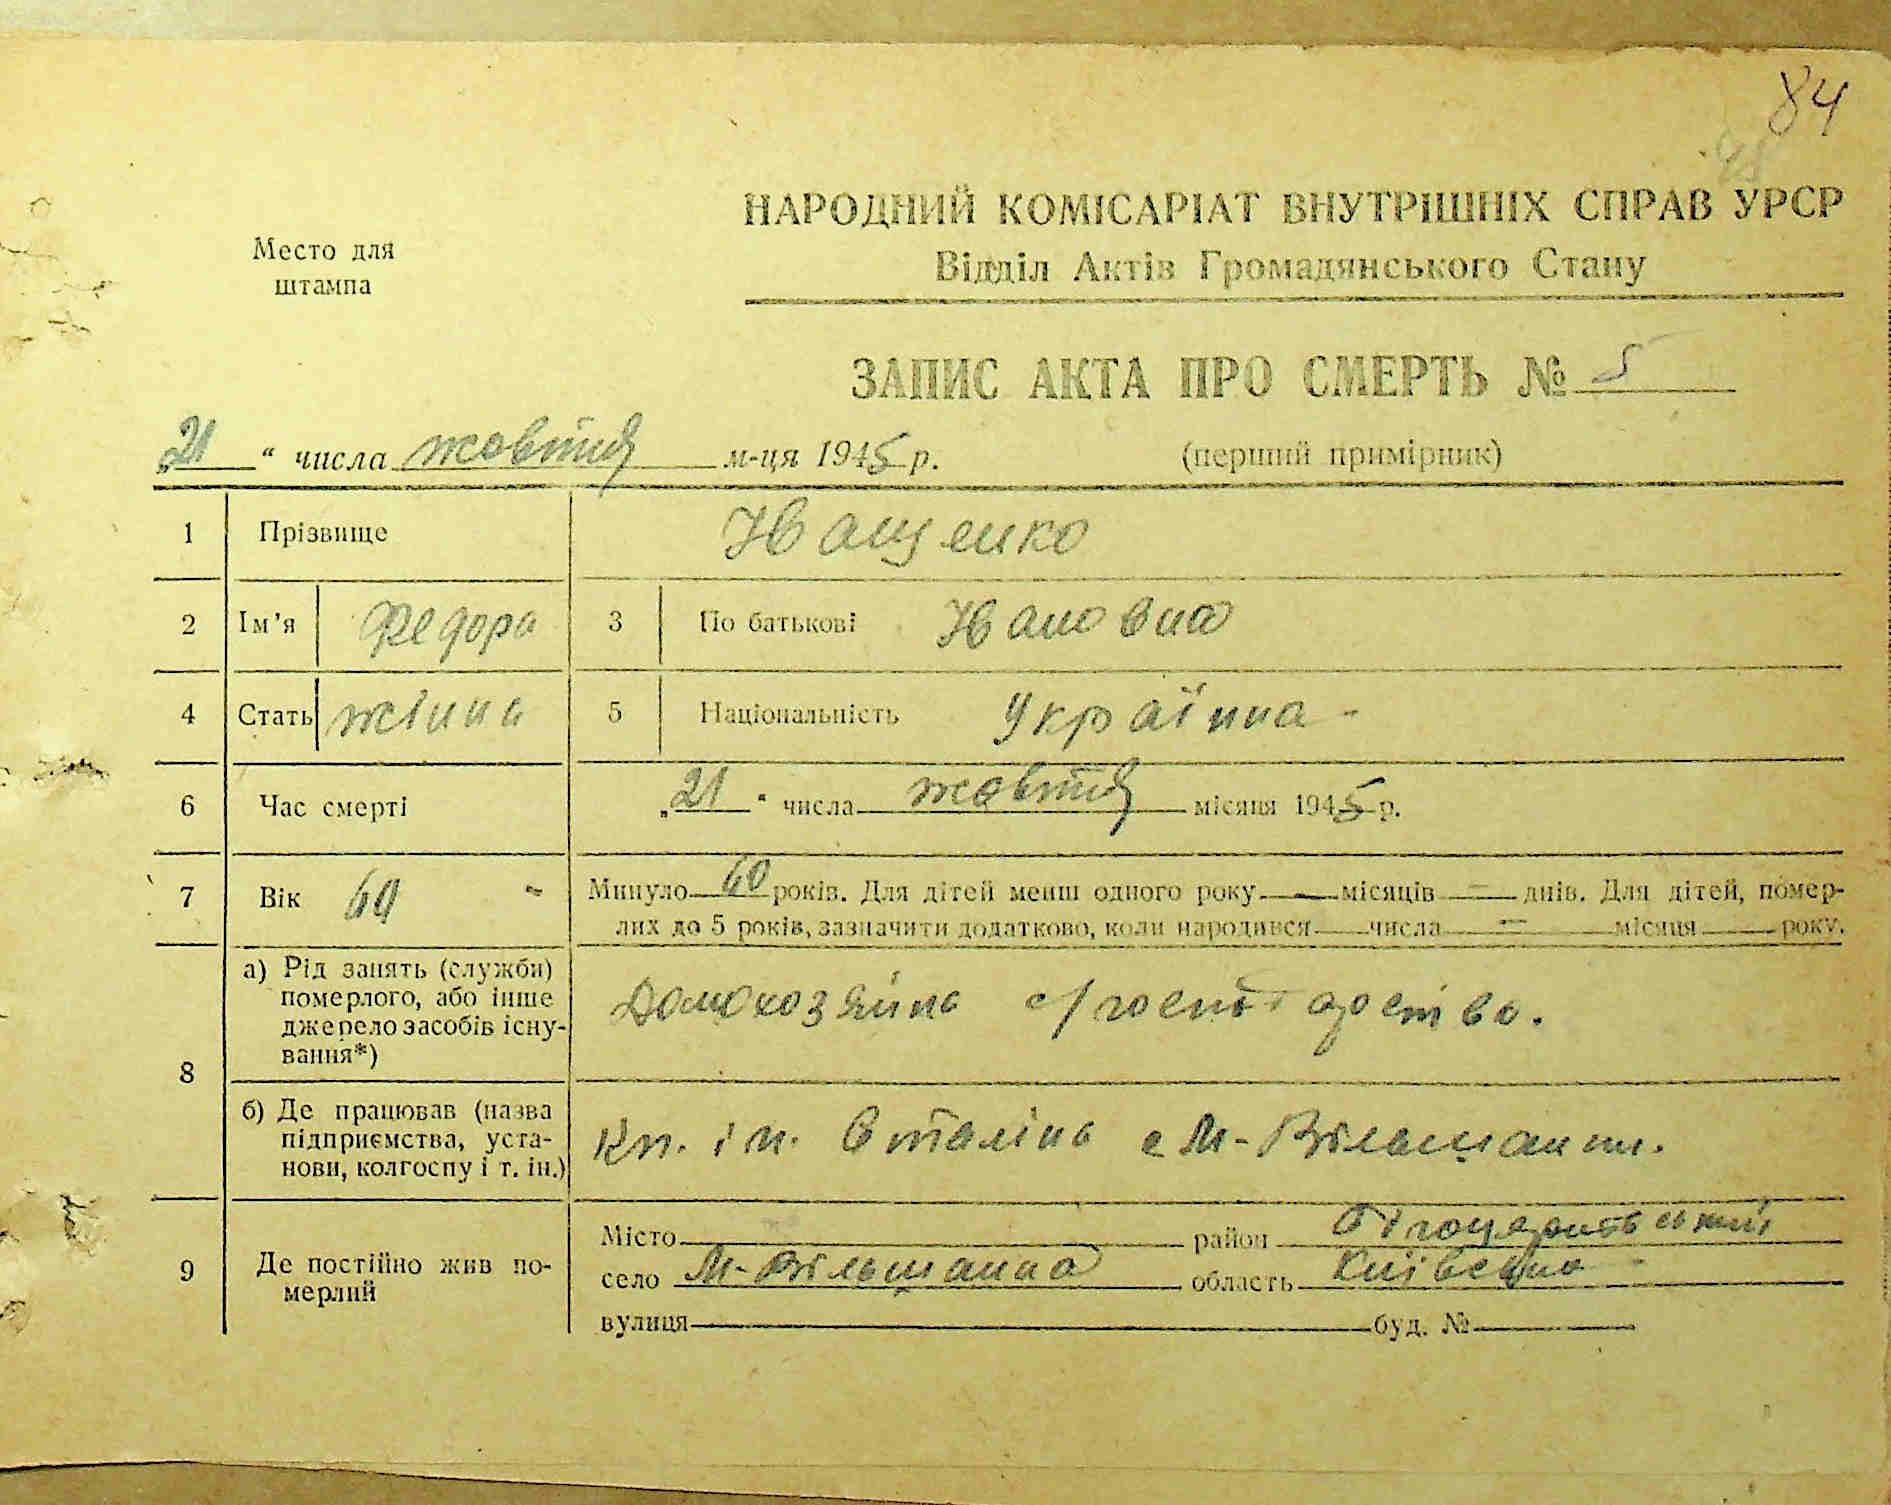 84
НАРОДНИЙ КОМІСАРІАТ ВНУТРІШНІХ СПРАВ УРСР
Відділ Актів Громадянського Стану
Место для
штампа
ЗАПИС АКТА ПРО СМЕРТЬ № 5
„21“ числа жовтня м-ця 1945 р. (перший примірник)
1 Прізвище Іващенко
2 Ім'я Федора 3 По батькові Івановна
4 Стать жінка 5 Національність Українка -
6 Час смерті „21“ числа жовтня місяця 1945 р.
7 Вік 60 - Минуло 60 років. Для дітей менш одного року — місяців — днів. Для дітей, помер-
лих до 5 років, зазначити додатково, коли народився числа — місяця року.
8 а) Рід занять (служби)
померлого, або інше
джерело засобів існу-
вання*)
Домохозяйка с/господарства.
б) Де працював (назва
підприємства, уста-
нови, колгоспу і т. ін.)
Кп. ім. Сталіна с М-Вільшанки.
9 Де постійно жив по-
мерлий
Місто район
село М-Вільшанка область Київська -
вулиця буд. №